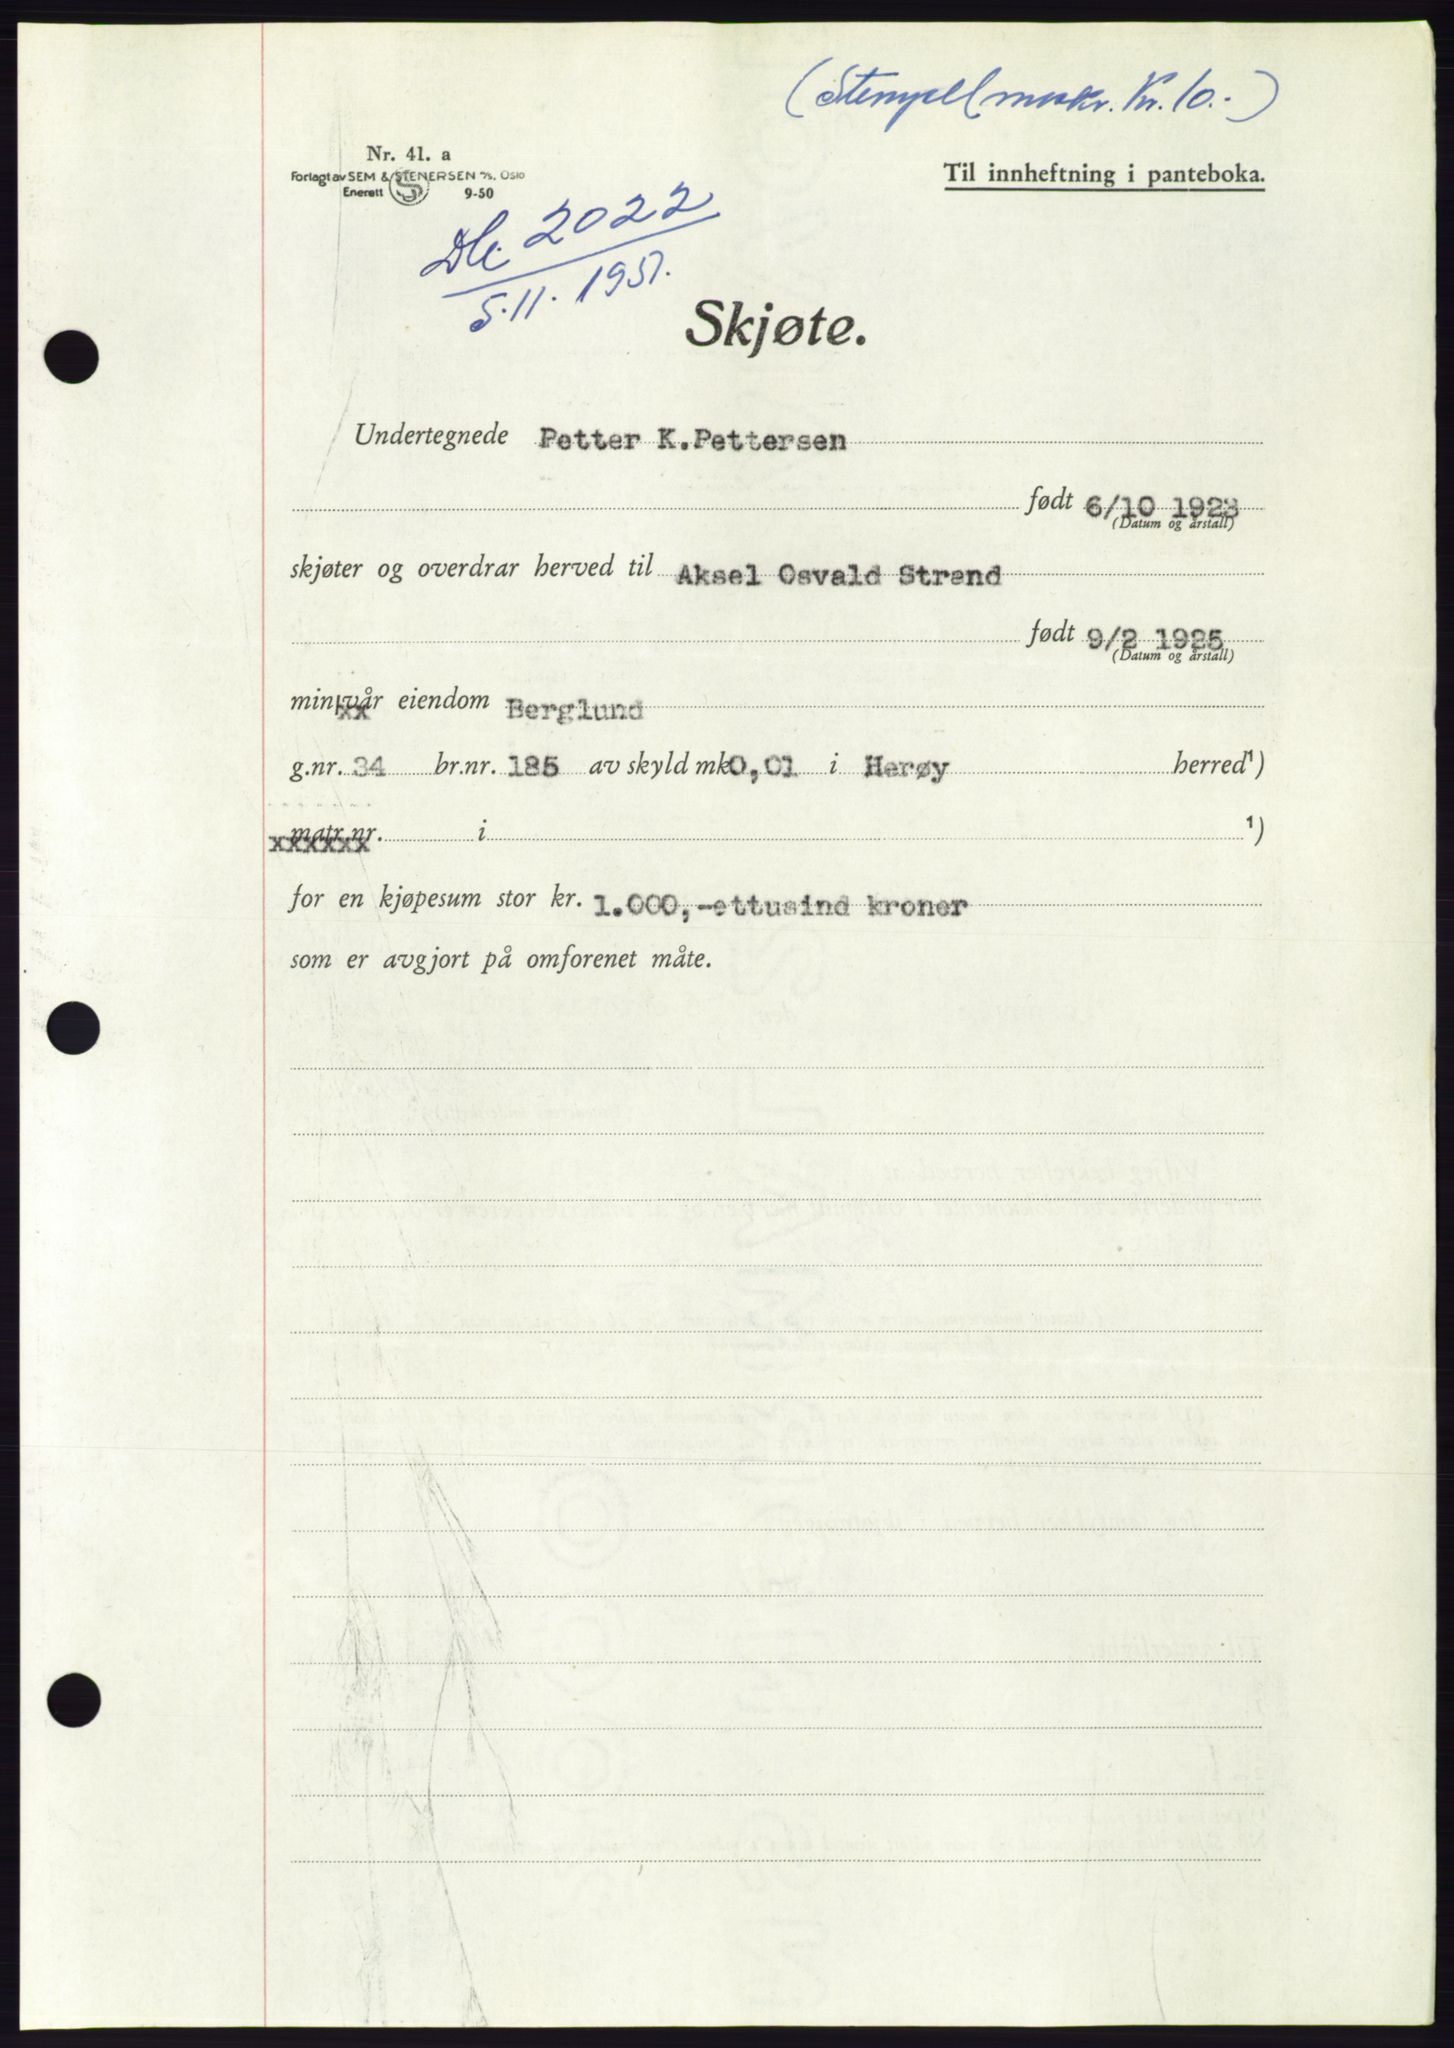 (Stempelmerkr. Kr. 10.-)
Nr. 41. a
Forlagt av SEM & STENERSEN A/S. Oslo
Enerett S 9-50
Til innheftning i panteboka.
2022
5.11. 1951.
Skjøte.
Undertegnede Petter K.Pettersen
født 6/10 1923
(Datum og årstall)
skjøter og overdrar herved til Aksel Osvald Strand
født 9/2 1925
(Datum og årstall)
min/vår eiendom Berglund
g.nr. 34 br.nr. 185 av skyld mk 0,01 i Herøy herred ¹)
matr.nr. i ¹)
for en kjøpesum stor kr. 1.000,-ettusind kroner
som er avgjort på omforenet måte.